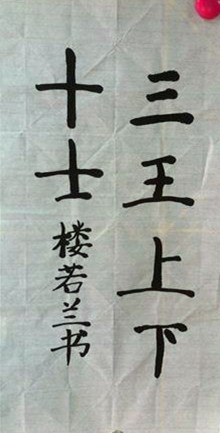 三王上下
十士楼若兰书